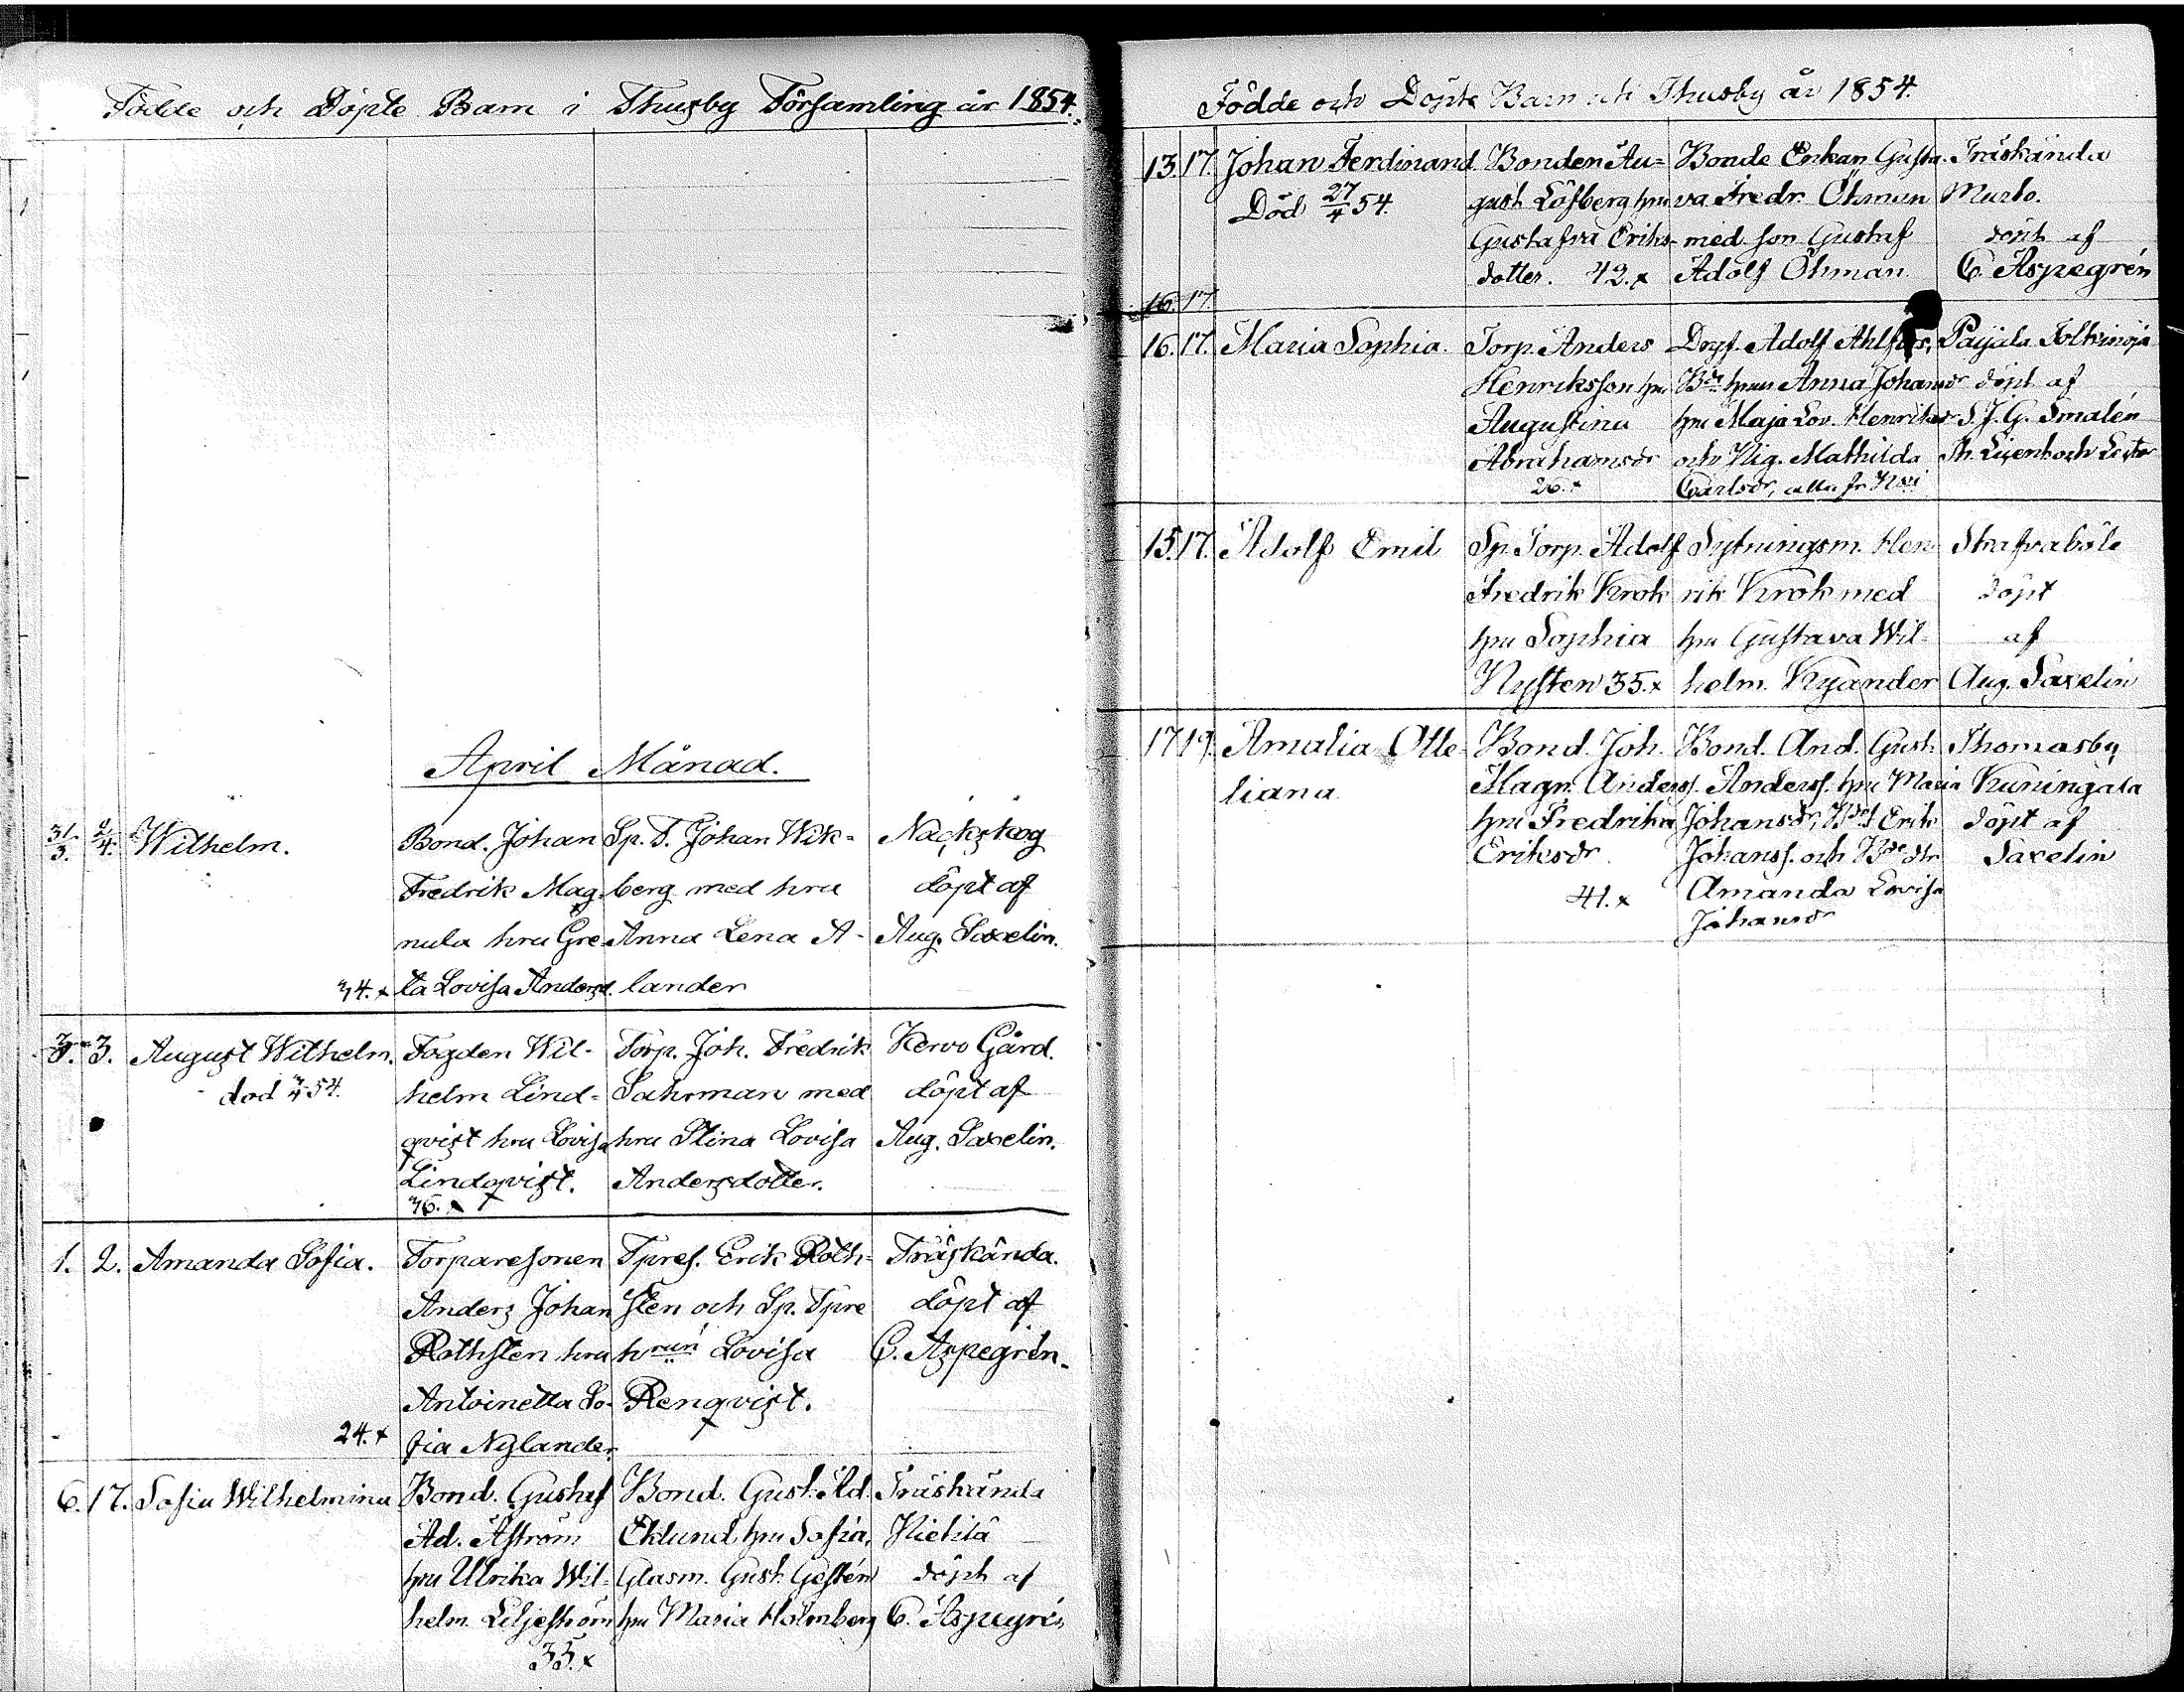 Födde och Döpte Barn i Thusby Församling år 1854.
April Månad.
31/3. 2/4. Wilhelm.
Bond. Johan
Fredrik Mag-
nula hru Gre-
34. x ta Lovisa Andersd.
Sp. T. Johan Wik-
berg med hru
Anna Lena A-
lander
Näckskog
döpt af
Aug. Saxelin.
3. 3. August Wilhelm.
död 54.
Fogden Wil-
helm Lind-
qvist hru Lovisa
Lindqvist.
36. x
Torp. Joh. Fredrik
Sahrman med
hru Stina Lovisa
Andersdotter.
Kervo Gård.
döpt af
Aug. Saxelin.
1. 2. Amanda Sofia.
Torparesonen
Anders Johan
Rothsten hru
Antoinetta So-
24. x fia Nylander.
Tpres. Erik Roth-
sten och Sp. Tpre
hrun Lovisa
Renqvist.
Träskända.
döpt af
C. Aspegrén.
6. 17. Sofia Wilhelmina
Bond. Gustaf
Ad. Åström
hru Ulrika Wil-
helm. Liljeström
35. x
Bond. Gust. Ad.
Eklund hru Sofia,
Glasm. Gust. Gestén
hru Maria Holmberg
Träskända
Hietilä
döpt af
C. Aspegrén
Födde och Döpte Barn uti Thusby år 1854.
13. 17. Johan Ferdinand.
Död 27/4 54.
Bonden Au-
gust Löfberg hru
Gustafva Eriks-
dotter. 42. x
Bonde Enkan Gusta-
va Fredr. Öhman
med son Gustaf
Adolf Öhman
Träskända
döpt af
C. Aspegrén
16. 17
16. 17. Maria Sophia.
Torp. Anders
Henriksson hru
Augustina
Abrahamsdr
26. x
Adolf Ahlfors,
hrun Anna Johansdr
hru Maja Lov. Henriksdr
och Pig. Mathilda
Carlsdr, alla fr.
Paijala
döpt af
S. J. G. Smalén
15. 17. Adolf Emil
Sp. Torp. Adolf
Fredrik Krok
hru Sophia
Nysten 35. x
Sytningsm. Hen
rik Krok med
hru Gustava Wil-
helm. Kyander
Skafvaböle
döpt
af
Aug. Saxelin
17. 19. Amalia Otte-
liana
Bond. Joh.
Magn. Anderss.
hru Fredrika
Eriksdr
41. x
Bond. And. Gust.
Anderss. hru Maria
Johansdr, Erik
Johanss. och
Amanda Lovisa
Johansdr
Thomasby
Kuningala
döpt af
Saxelin